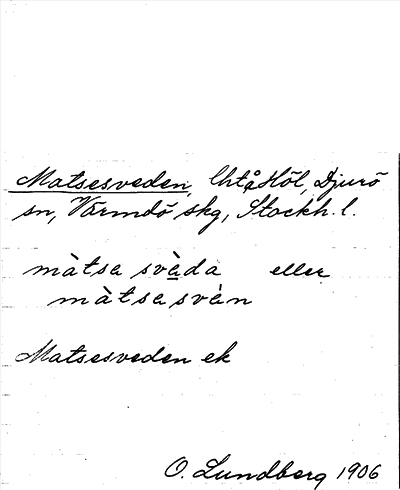 Matsesveden, Djurö
sn, Värmdö skg, Stockh. l.
màtsa svàda eller
màtsasvàn
Matsesveden ek
O. Lundberg 1906